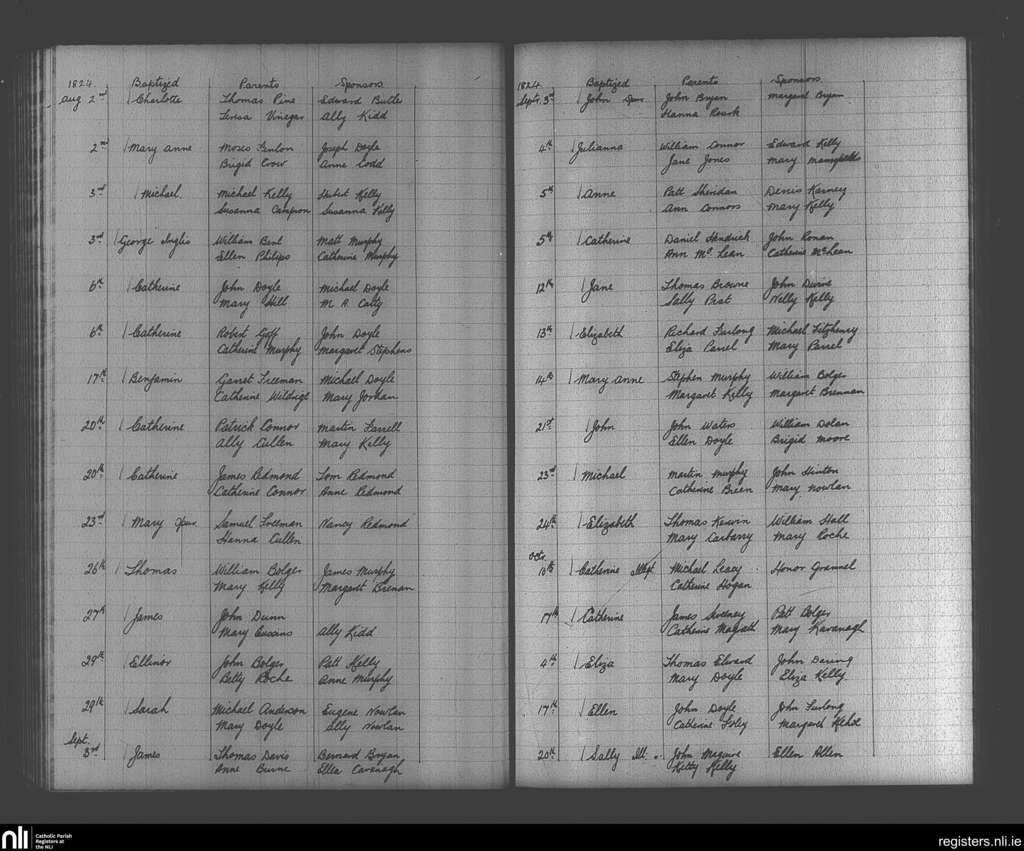 1824. Baptized Parents Sponsors
Aug 2nd Charlotte Thomas Pine Edward Butler
Teresa Vinegar Ally Kidd
2nd Mary Anne Moses Fenlon Joseph Doyle
Brigid Crow Anne Codd
3rd Michael Michael Kelly Kelly
Susanna Campion Susanna Kelly
3rd George Inglis William Bent Matt Murphy
Ellen Philips Catherine Murphy
6th Catherine John Doyle Michael Doyle
Mary Hill M. A. Carty
6th Catherine Robert Goff John Doyle
Catherine Murphy Margaret Stephens
17th Benjamin Garret Freeman Michael Doyle
Catherine Mary Jordan
20th Catherine Patrick Connor Martin Farrell
Ally Cullen Mary Kelly
20th Catherine James Redmond Tom Redmond
Catherine Connor Anne Redmond
23rd Mary Samuel Freeman Nancy Redmond
Hanna Cullen
26th Thomas William Bolger James Murphy
Mary Kelly Margaret Brenan
27th James John Dunn
Mary Cussins Ally Kidd
29th Ellinor John Bolger Patt Kelly
Betty Roche Anne Murphy
29th Sarah Michael Anderson Eugene Nowlan
Mary Doyle Ally Nowlan
Sept.
3rd James Thomas Davis Bernard Bryan
Anne Burne Ellea Cavanagh
1824 Baptized Parents Sponsors
Septr. 3rd John John Bryan Margaret Bryan
Hanna
4th Julianna William Connor Edward Kelly
Jane Jones Mary
5th Anne Patt Sheridan Denis Karney
Ann Connors Mary Kelly
5th Catherine Daniel Hendrick John Ronan
Ann McLean Catherine McLean
12th Jane Thomas Browne John Divine
Sally Prat Nelly Kelly
13th Elizabeth Richard Furlong Michael Fitzhenry
Eliza Parrel Mary Parrel
14th Mary Anne Stephen Murphy William Bolger
Margaret Kelly Margaret Brennan
21st John John Waters William Dolan
Ellen Doyle Brigid Moore
23rd Michael Martin Murphy John Hinton
Catherine Breen Mary Nowlan
24th Elizabeth Thomas Kerwin William Hall
Mary Carbarry Mary Roche
Octr.
10th Catherine Illegt Michael Leacy Honor Grannel
Catherine Hogan
17th Catherine James Sweeney Patt Bolger
Catherine Magrath Mary Kavanagh
4th Eliza Thomas Elward John Daring
Mary Doyle Eliza Kelly
17th Ellen John Doyle John Furlong
Catherine Foley Margaret Kehoe
20th Sally Ill. John Maguire Ellen Allen
Kitty Kelly
nli
Catholic Parish
Registers at
the NLI
registers.nli.ie